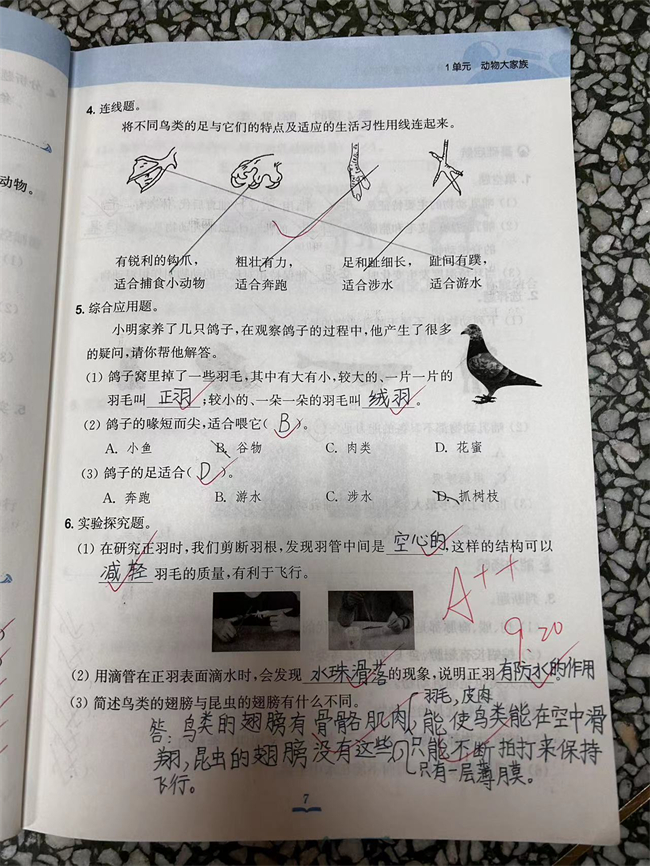 1单元 动物大家族
4. 连线题。
将不同鸟类的足与它们的特点及适应的生活习性用线连起来。
有锐利的钩爪， 粗壮有力， 足和趾细长， 趾间有蹼，
适合捕食小动物 适合奔跑 适合涉水 适合游水
5. 综合应用题。
小明家养了几只鸽子，在观察鸽子的过程中，他产生了很多
的疑问，请你帮他解答。
(1) 鸽子窝里掉了一些羽毛，其中有大有小，较大的、一片一片的
羽毛叫 正羽 ；较小的、一朵一朵的羽毛叫 绒羽 。
(2) 鸽子的喙短而尖，适合喂它( B )。
A. 小鱼 B. 谷物 C. 肉类 D. 花蜜
(3) 鸽子的足适合( D )。
A. 奔跑 B. 游水 C. 涉水 D. 抓树枝
6. 实验探究题。
(1) 在研究正羽时，我们剪断羽根，发现羽管中间是 空心的 ，这样的结构可以
减轻 羽毛的质量，有利于飞行。
A++
9.20
(2) 用滴管在正羽表面滴水时，会发现 水珠滑落 的现象，说明正羽 有防水的作用
(3) 简述鸟类的翅膀与昆虫的翅膀有什么不同。
羽毛，皮肉
答：鸟类的翅膀有骨骼肌肉，能使鸟类能在空中滑
翔，昆虫的翅膀没有这些，只能不断拍打来保持
飞行。
只有一层薄膜。
7
动物。